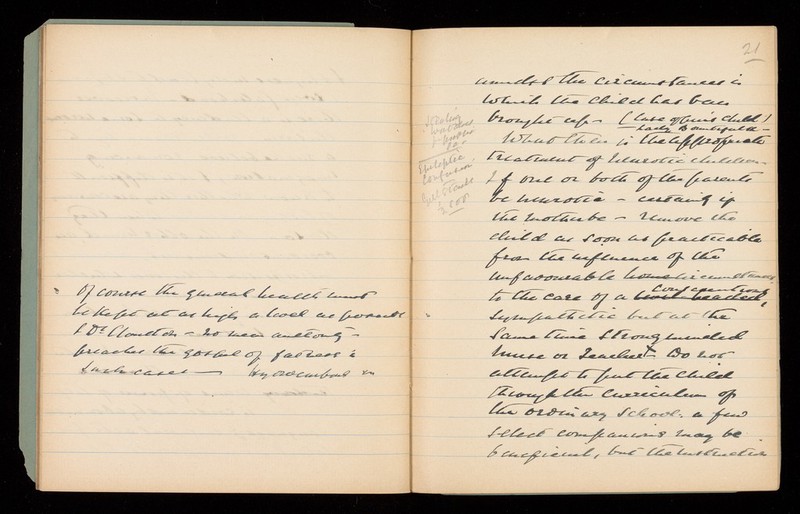 Of course the general health must
be kept at as high a level as possible
& Dr Clouston - no mean authority -
preaches the gospel of fatness in
such cases — Hydrocarbons
21
amidst the circumstances in
which the child has been
brought up - (Case of
Lady Bountiful -
What then is the appropriate
treatment of neurotic children -
If one or both of the parents
be neurotic - certainly if
the mother be - remove the
child as soon as practicable
from the influence of the
unfavourable home circumstances
to the care of a
sympathetic but at the
same time strong minded
nurse or teacher - Do not
attempt to put the child
through the curriculum of
the ordinary school. a few
select companions may be
beneficial, but the instruction
Epileptic